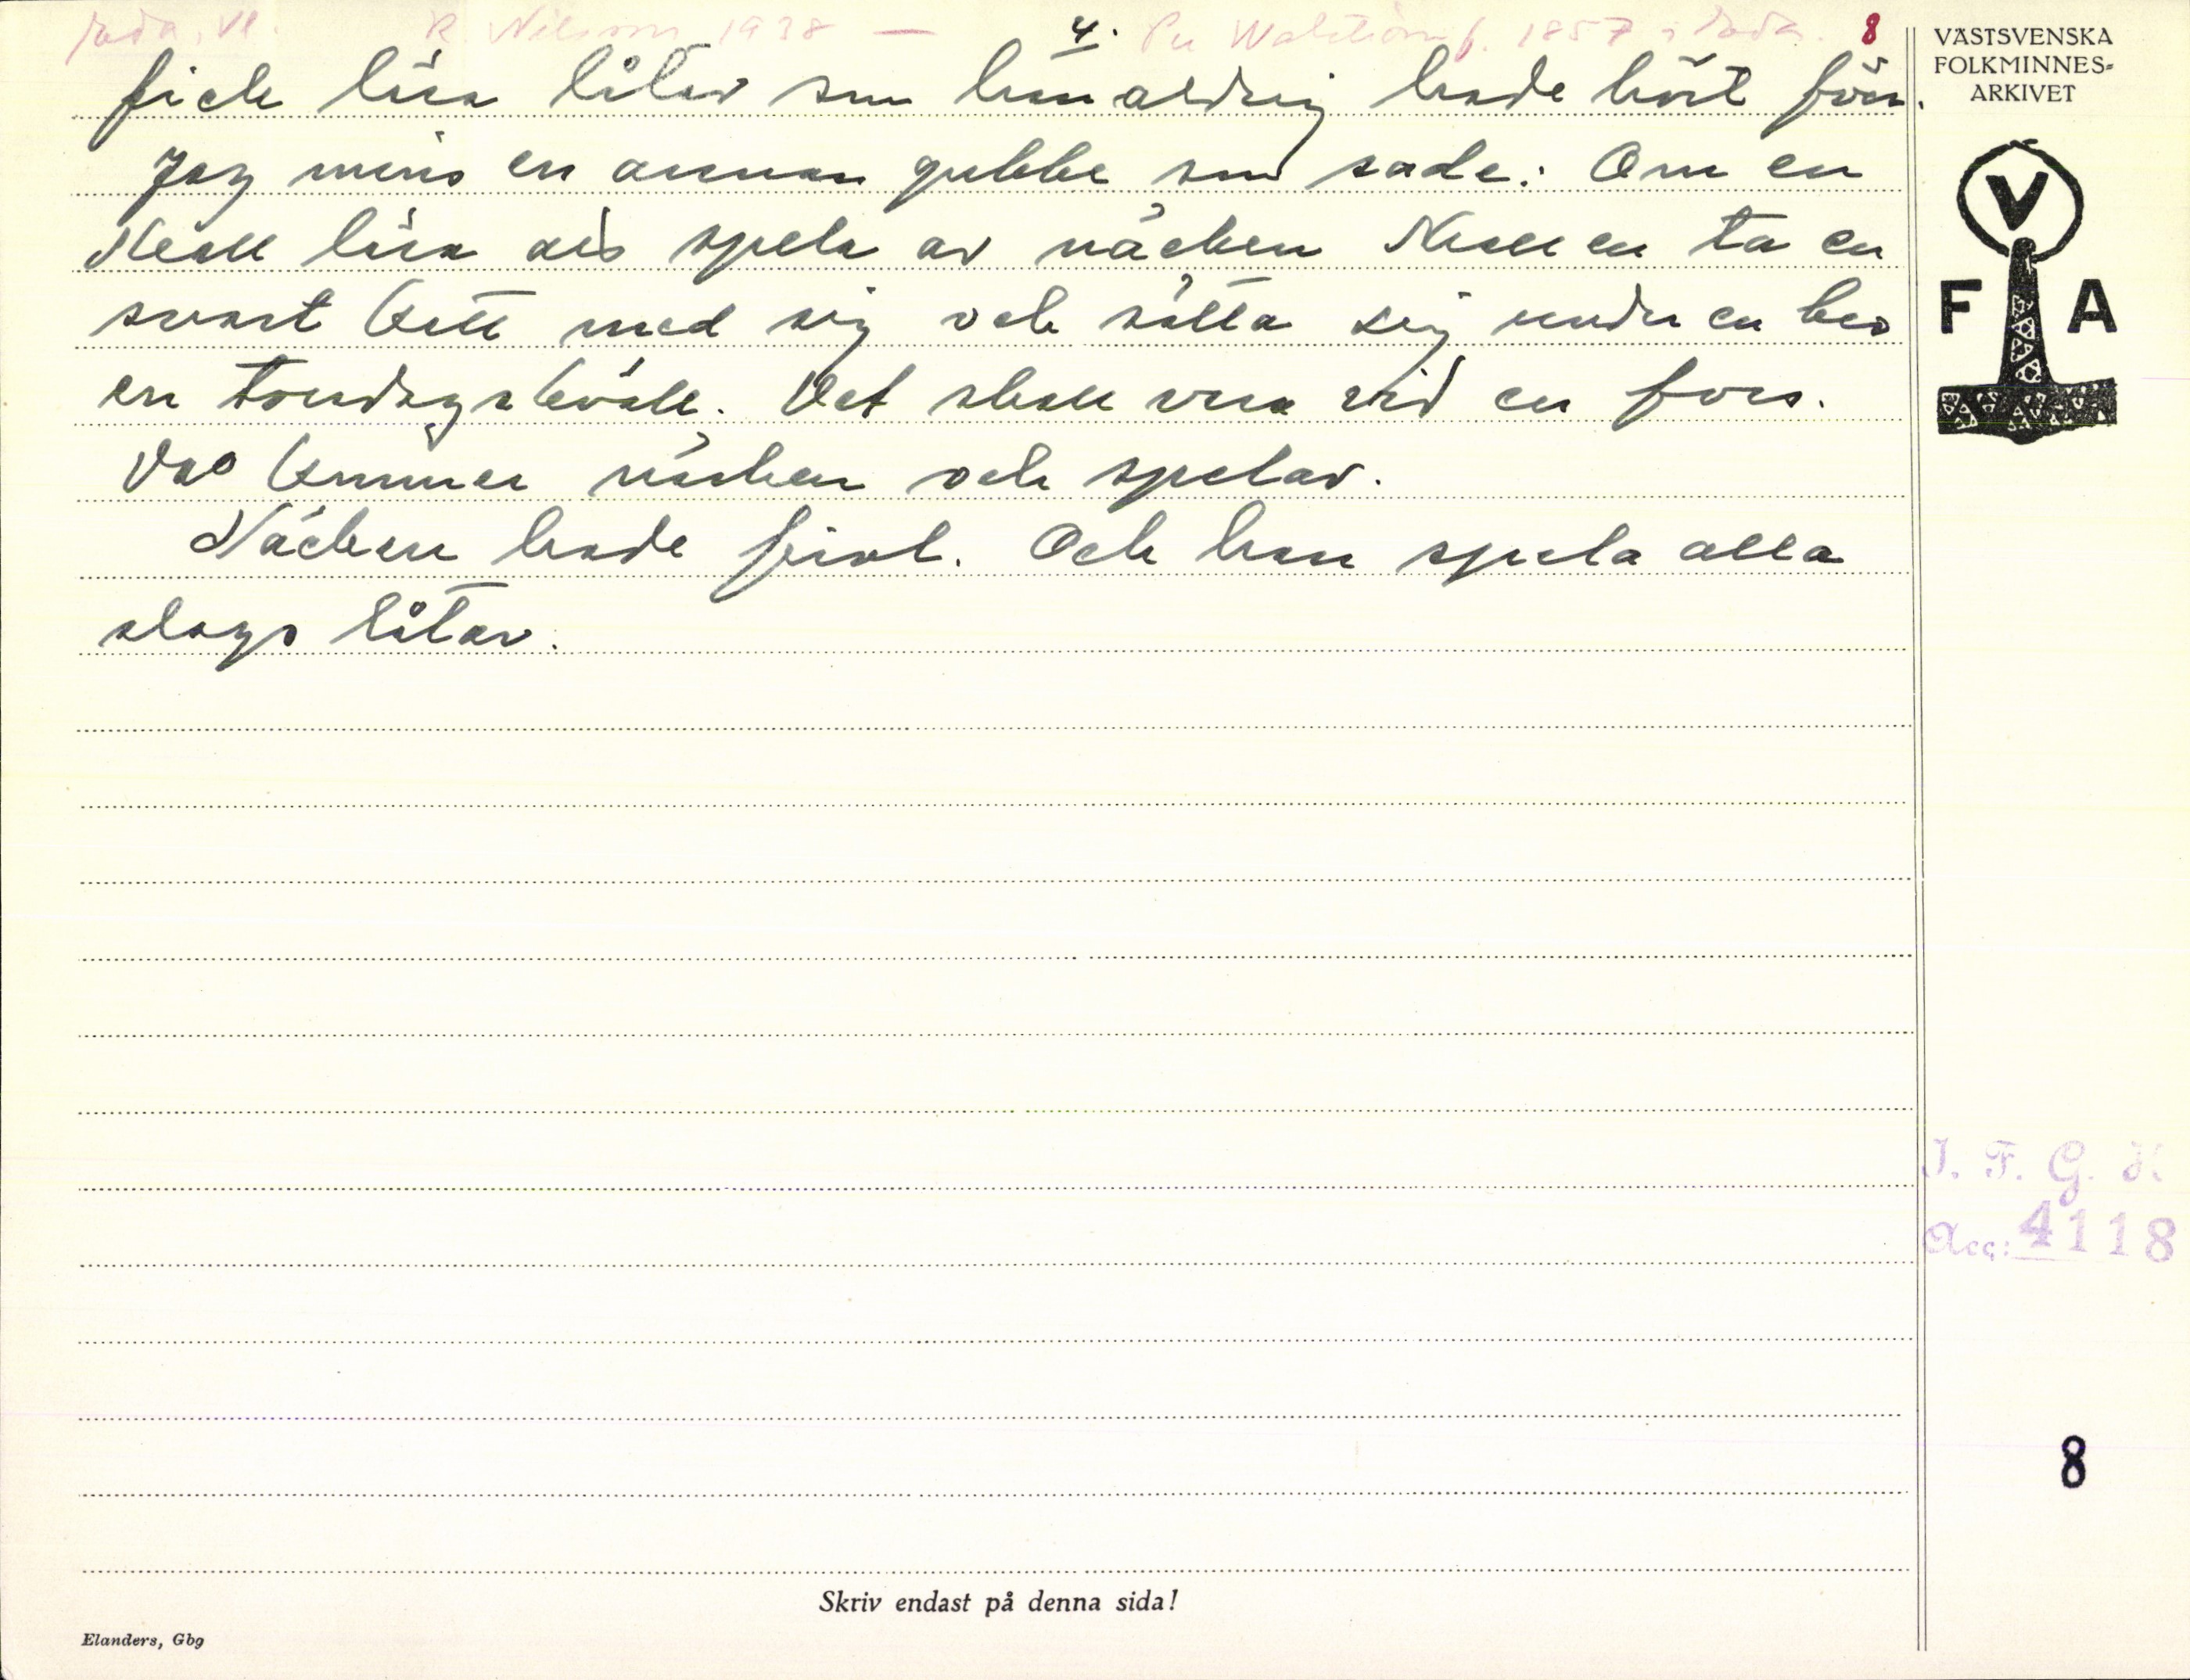 Råda, Vl. R. Nilsson 1938 — 4. Per Wahlström f. 1857 i Råda. 8
fick lära låtar som han aldrig hade hört förr.
Jag minns en annan gubbe som sade: Om en
skall lära sig spela av näcken skall en ta en
svart katt med sig och sätta sig under en bro
en torsdagskväll. Det skall vara vid en fors.
Där kommer näcken och spelar.
Näcken hade fiol. Och han spela alla
slags låtar.
VÄSTSVENSKA
FOLKMINNES-
ARKIVET
V
F A
I. F. G. H
Acc: 4118
8
Skriv endast på denna sida!
Elanders, Gbg